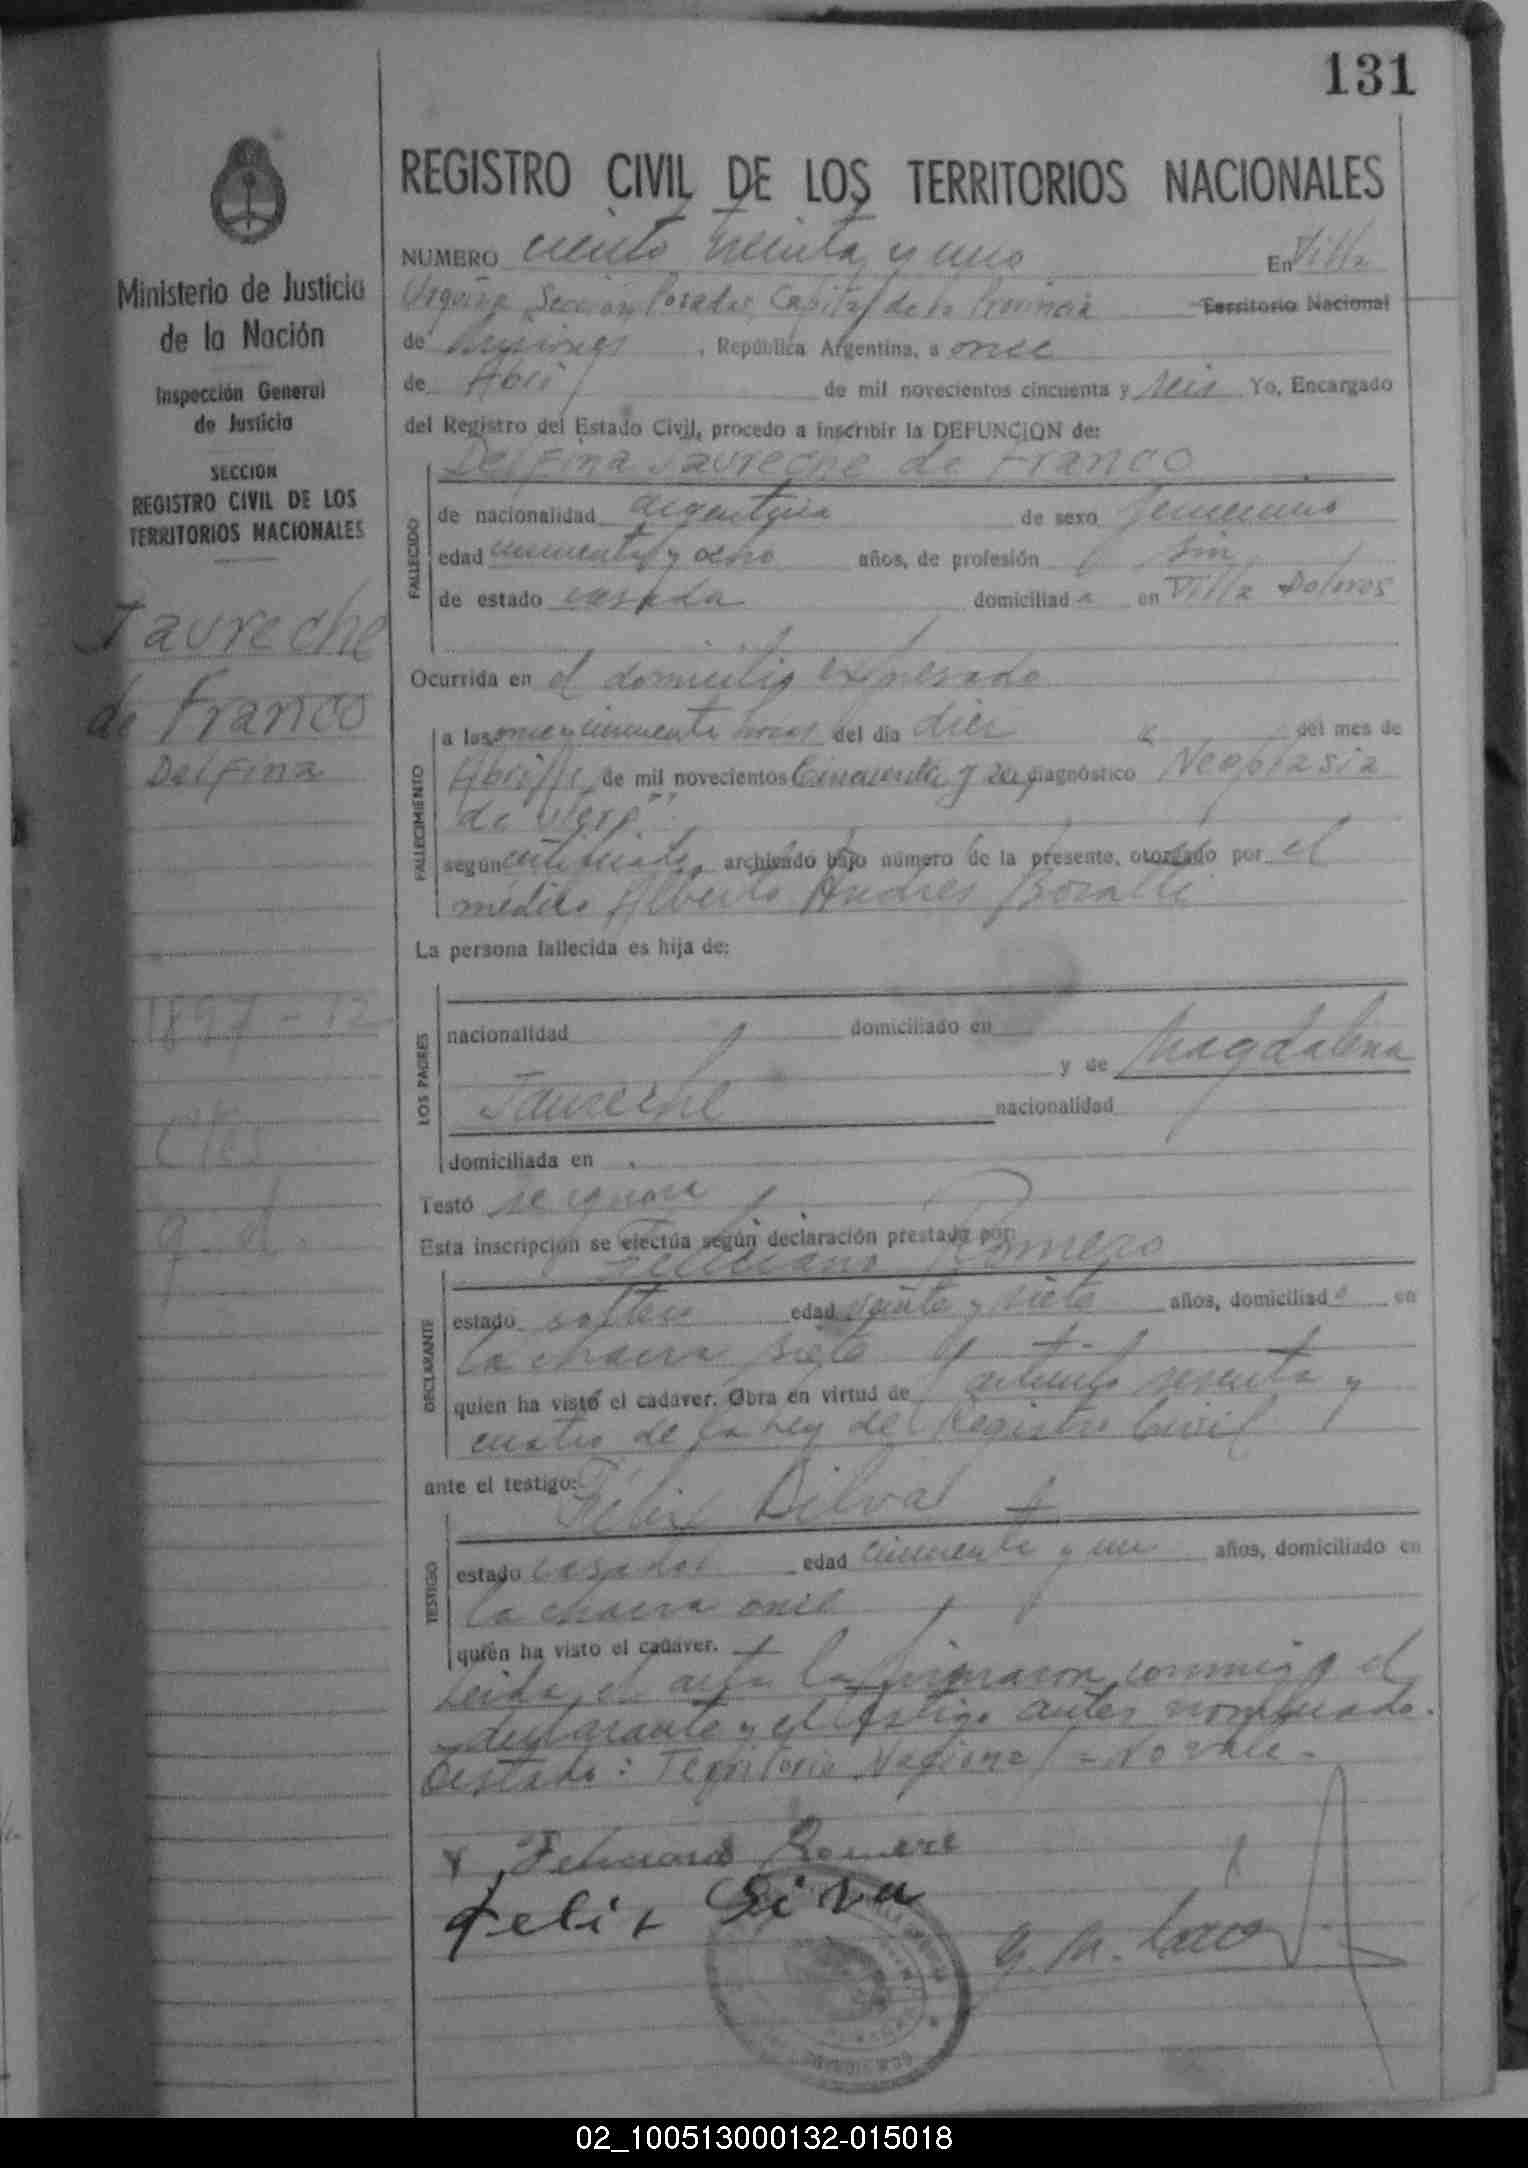 131
REGISTRO CIVIL DE LOS TERRITORIOS NACIONALES
Ministerio de Justicia
de la Nación
Inspección General
de Justicia
SECCION
REGISTRO CIVIL DE LOS
TERRITORIOS NACIONALES
Jaureche
de Franco
Delfina
1897 - 12
Ctes
q. d.
NUMERO ciento treinta y uno En Villa
Urquiza Sección Posadas, Capital de la Provincia Territorio Nacional
de Misiones, República Argentina, a once
de Abril de mil novecientos cincuenta y seis Yo, Encargado
del Registro del Estado Civil, procedo a inscribir la DEFUNCION de:
Delfina Jaureche de Franco
FALLECIDO
de nacionalidad argentina de sexo femenino
edad cincuenta y ocho años, de profesión sin
de estado casada domiciliada en Villa Dolores
Ocurrida en el domicilio expresado
FALLECIMIENTO
a las once y cincuenta horas del día diez del mes de
Abril de mil novecientos cincuenta y seis diagnóstico Neoplasia
de
según certificado, archivado bajo número de la presente, otorgado por el
médico Alberto Andres
La persona fallecida es hija de:
LOS PADRES
nacionalidad domiciliado en
y de Magdalena
Jaureche nacionalidad
domiciliada en
Testó se ignora
Esta inscripción se efectúa según declaración prestada por:
Feliciano Romero
DECLARANTE
estado soltero edad veinte y siete años, domiciliado en
la chacra siete
quien ha visto el cadaver. Obra en virtud de artículo sesenta y
cuatro de la Ley del Registro Civil
ante el testigo:
Felix Silva
TESTIGO
estado casado edad cincuenta y un años, domiciliado en
la chacra once
quién ha visto el cadáver.
Leida el acta la firmaron conmigo el
declarante y el testigo antes nombrado.
Testado: Territorio Nacional - No vale -
Feliciano Romero
Felix Silva
02_100513000132-015018